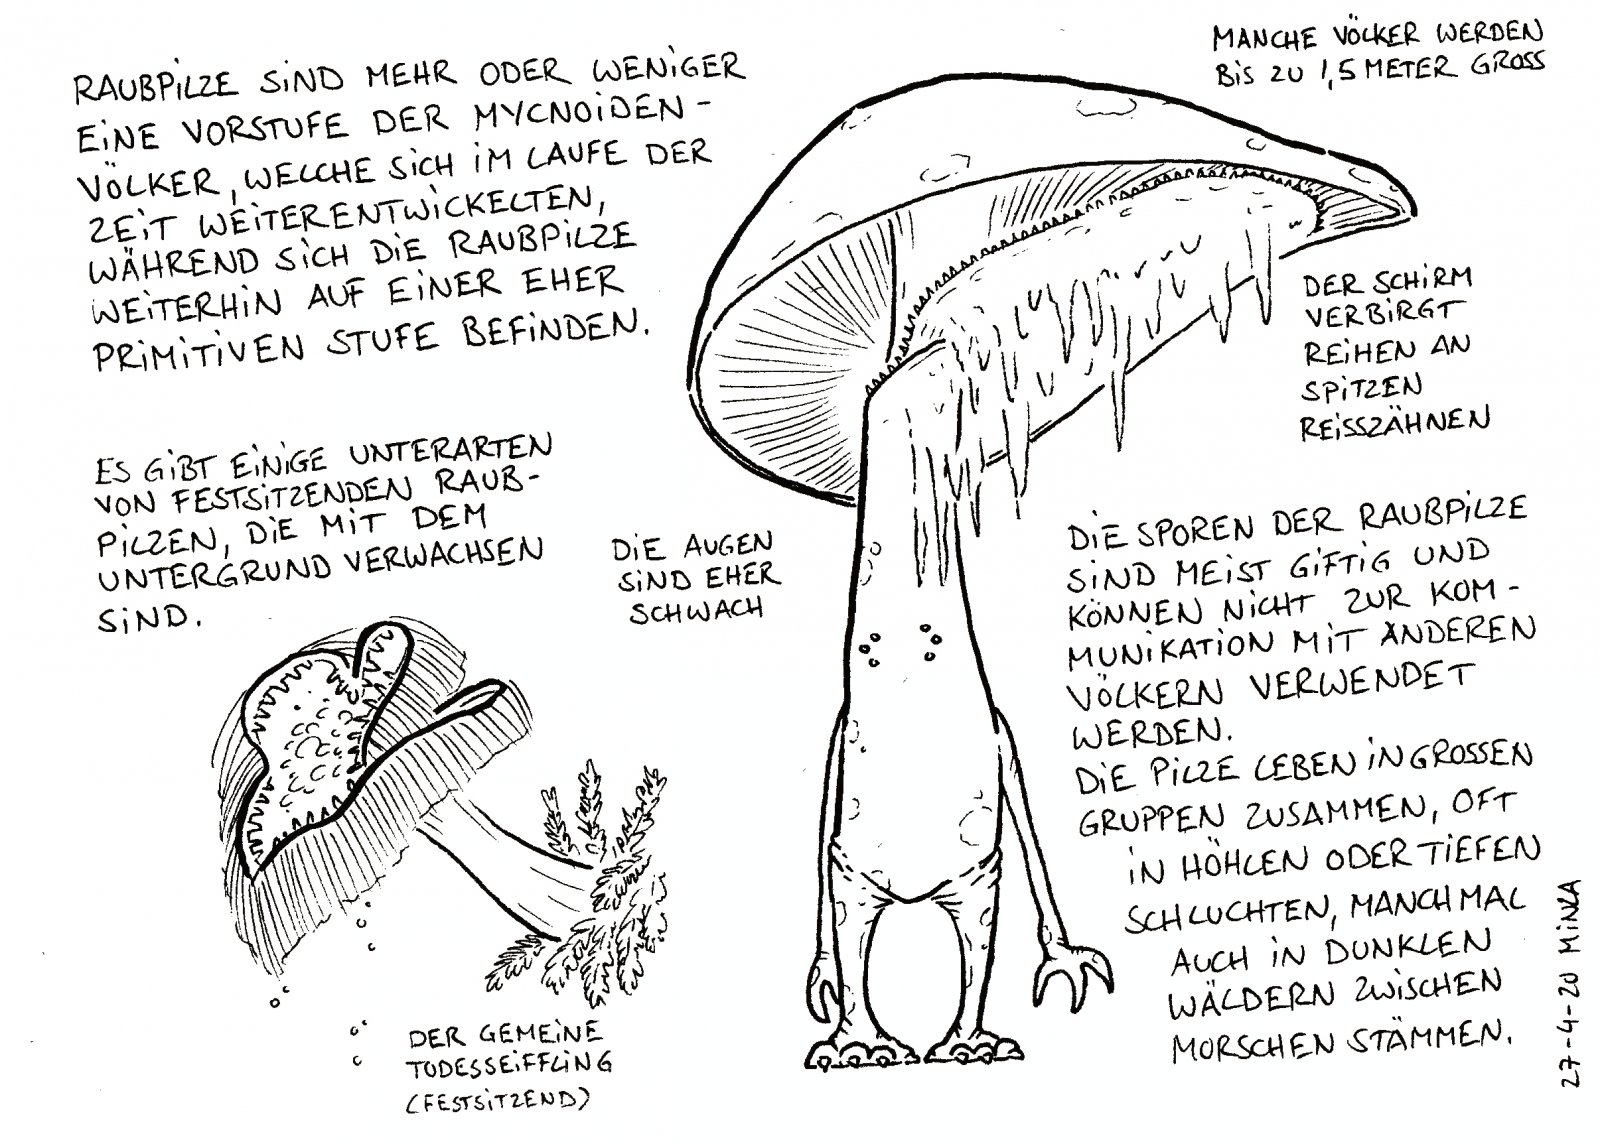 RAUBPILZE SIND MEHR ODER WENIGER
EINE VORSTUFE DER MYCNOIDEN-
VÖLKER, WELCHE SICH IM LAUFE DER
ZEIT WEITERENTWICKELTEN,
WÄHREND SICH DIE RAUBPILZE
WEITERHIN AUF EINER EHER
PRIMITIVEN STUFE BEFINDEN.
MANCHE VÖLKER WERDEN
BIS ZU 1,5 METER GROSS
DER SCHIRM
VERBIRGT
REIHEN AN
SPITZEN
REISSZÄHNEN
ES GIBT EINIGE UNTERARTEN
VON FESTSITZENDEN RAUB-
PILZEN, DIE MIT DEM
UNTERGRUND VERWACHSEN
SIND.
DIE AUGEN
SIND EHER
SCHWACH
DIE SPOREN DER RAUBPILZE
SIND MEIST GIFTIG UND
KÖNNEN NICHT ZUR KOM-
MUNIKATION MIT ANDEREN
VÖLKERN VERWENDET
WERDEN.
DIE PILZE LEBEN IN GROSSEN
GRUPPEN ZUSAMMEN, OFT
IN HÖHLEN ODER TIEFEN
SCHLUCHTEN, MANCHMAL
AUCH IN DUNKLEN
WÄLDERN ZWISCHEN
MORSCHEN STÄMMEN.
DER GEMEINE
TODESSEIFFLING
(FESTSITZEND)
27-4-20 MINZA